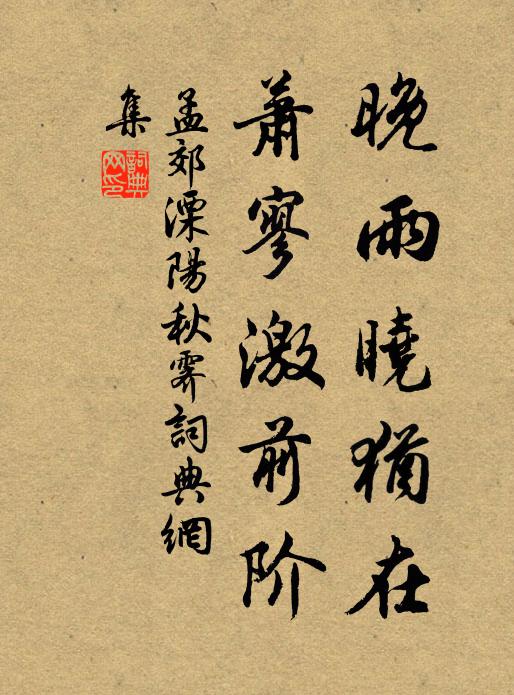 晚雨曉猶在
蕭寥激前阶
孟郊溧陽秋霽詞典網
集
詞典
网印